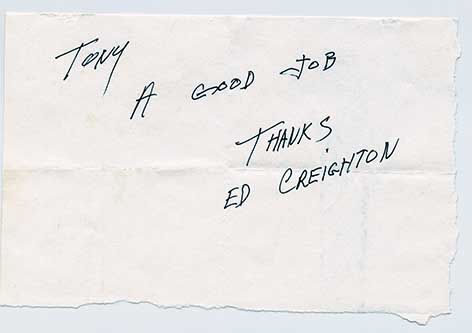 TONY
A GOOD JOB
THANKS
ED CREIGHTON